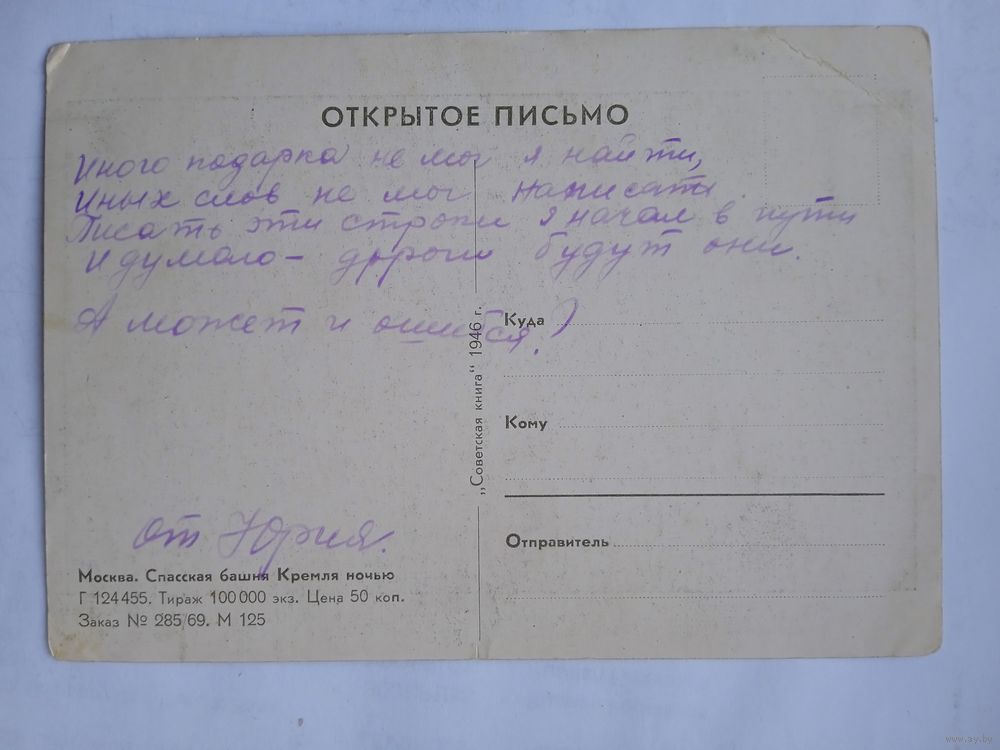 ОТКРЫТОЕ ПИСЬМО
Иного подарка не мог я найти,
Иных слов не мог написать.
Писать эти строки я начал в пути
И думало – дороги будут они.
А может и ошибся.)
от Юрия.
Москва. Спасская башня Кремля ночью
Г 124455. Тираж 100 000 экз. Цена 50 коп.
Заказ № 285/69. М 125
„Советская книга“ 1946 г.
Куда
Кому
Отправитель
www.ay.by